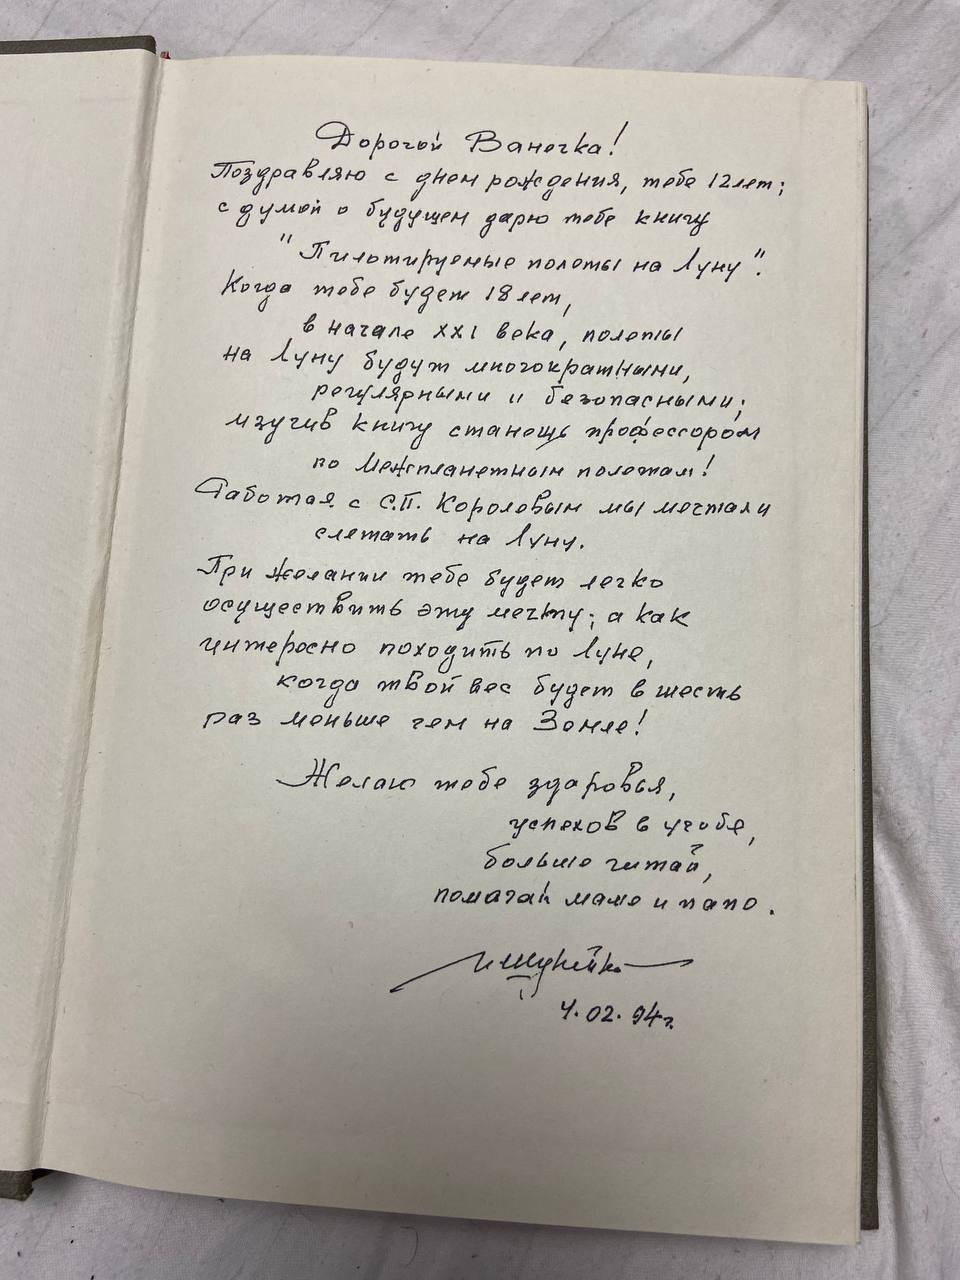 Дорогой Ванечка!
Поздравляю с днем рождения, тебе 12 лет;
с думой о будущем дарю тебе книгу
"Пилотируемые полеты на Луну".
Когда тебе будет 18 лет,
в начале XXI века, полеты
на Луну будут многократными,
регулярными и безопасными;
изучив книгу станешь профессором
по межпланетным полетам!
Работая с С.П. Королевым мы мечтали
слетать на Луну.
При желании тебе будет легко
осуществить эту мечту; а как
интересно походить по Луне,
когда твой вес будет в шесть
раз меньше чем на Земле!
Желаю тебе здоровья,
успехов в учебе,
больше читай,
помогай маме и папе.
И Шунейко
4.02.94г.